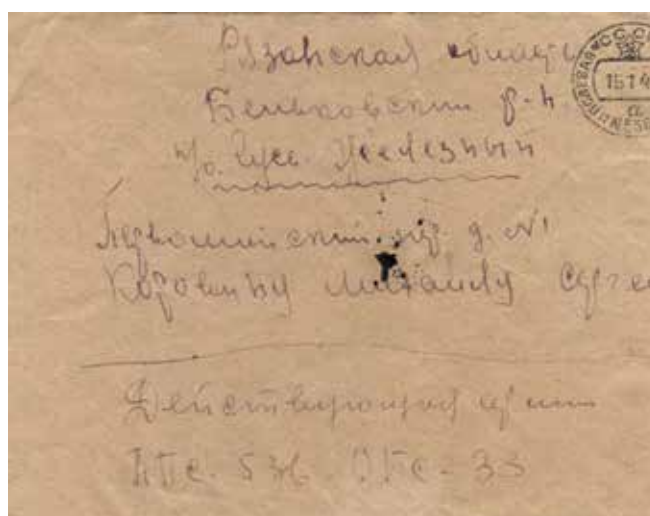 Рязанская область
Бельковский р-н
п/о Гусь Железный
Первомайский пер. д. №1
Коровину Михаилу Серге
Действующая армия
ППС. 536.
СССР
15.1.4